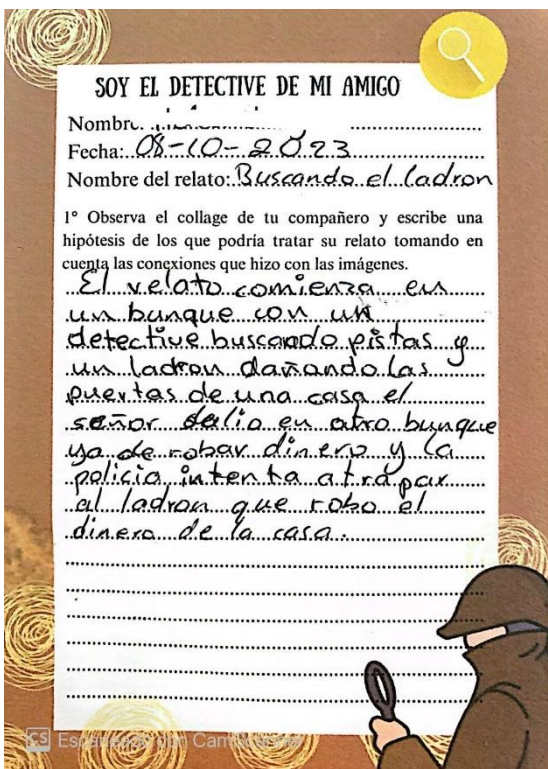 SOY EL DETECTIVE DE MI AMIGO
Nombre:
Fecha: 08-10-2023
Nombre del relato: Buscando el ladron
1° Observa el collage de tu compañero y escribe una
hipótesis de los que podría tratar su relato tomando en
cuenta las conexiones que hizo con las imágenes.
El relato comienza en
un bunque con un
detective buscando pistas y
un ladron dañando las
puertas de una casa el
señor salio en otro bunque
ya de robar dinero y la
policia intenta atrapar
al ladron que robo el
dinero de la casa.
CS Escaneado con CamScanner